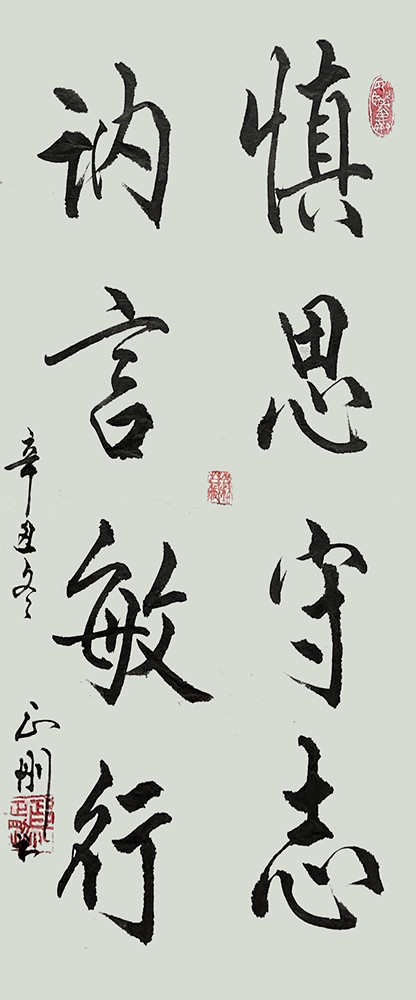 慎思守志
讷言敏行
辛丑冬
正刚